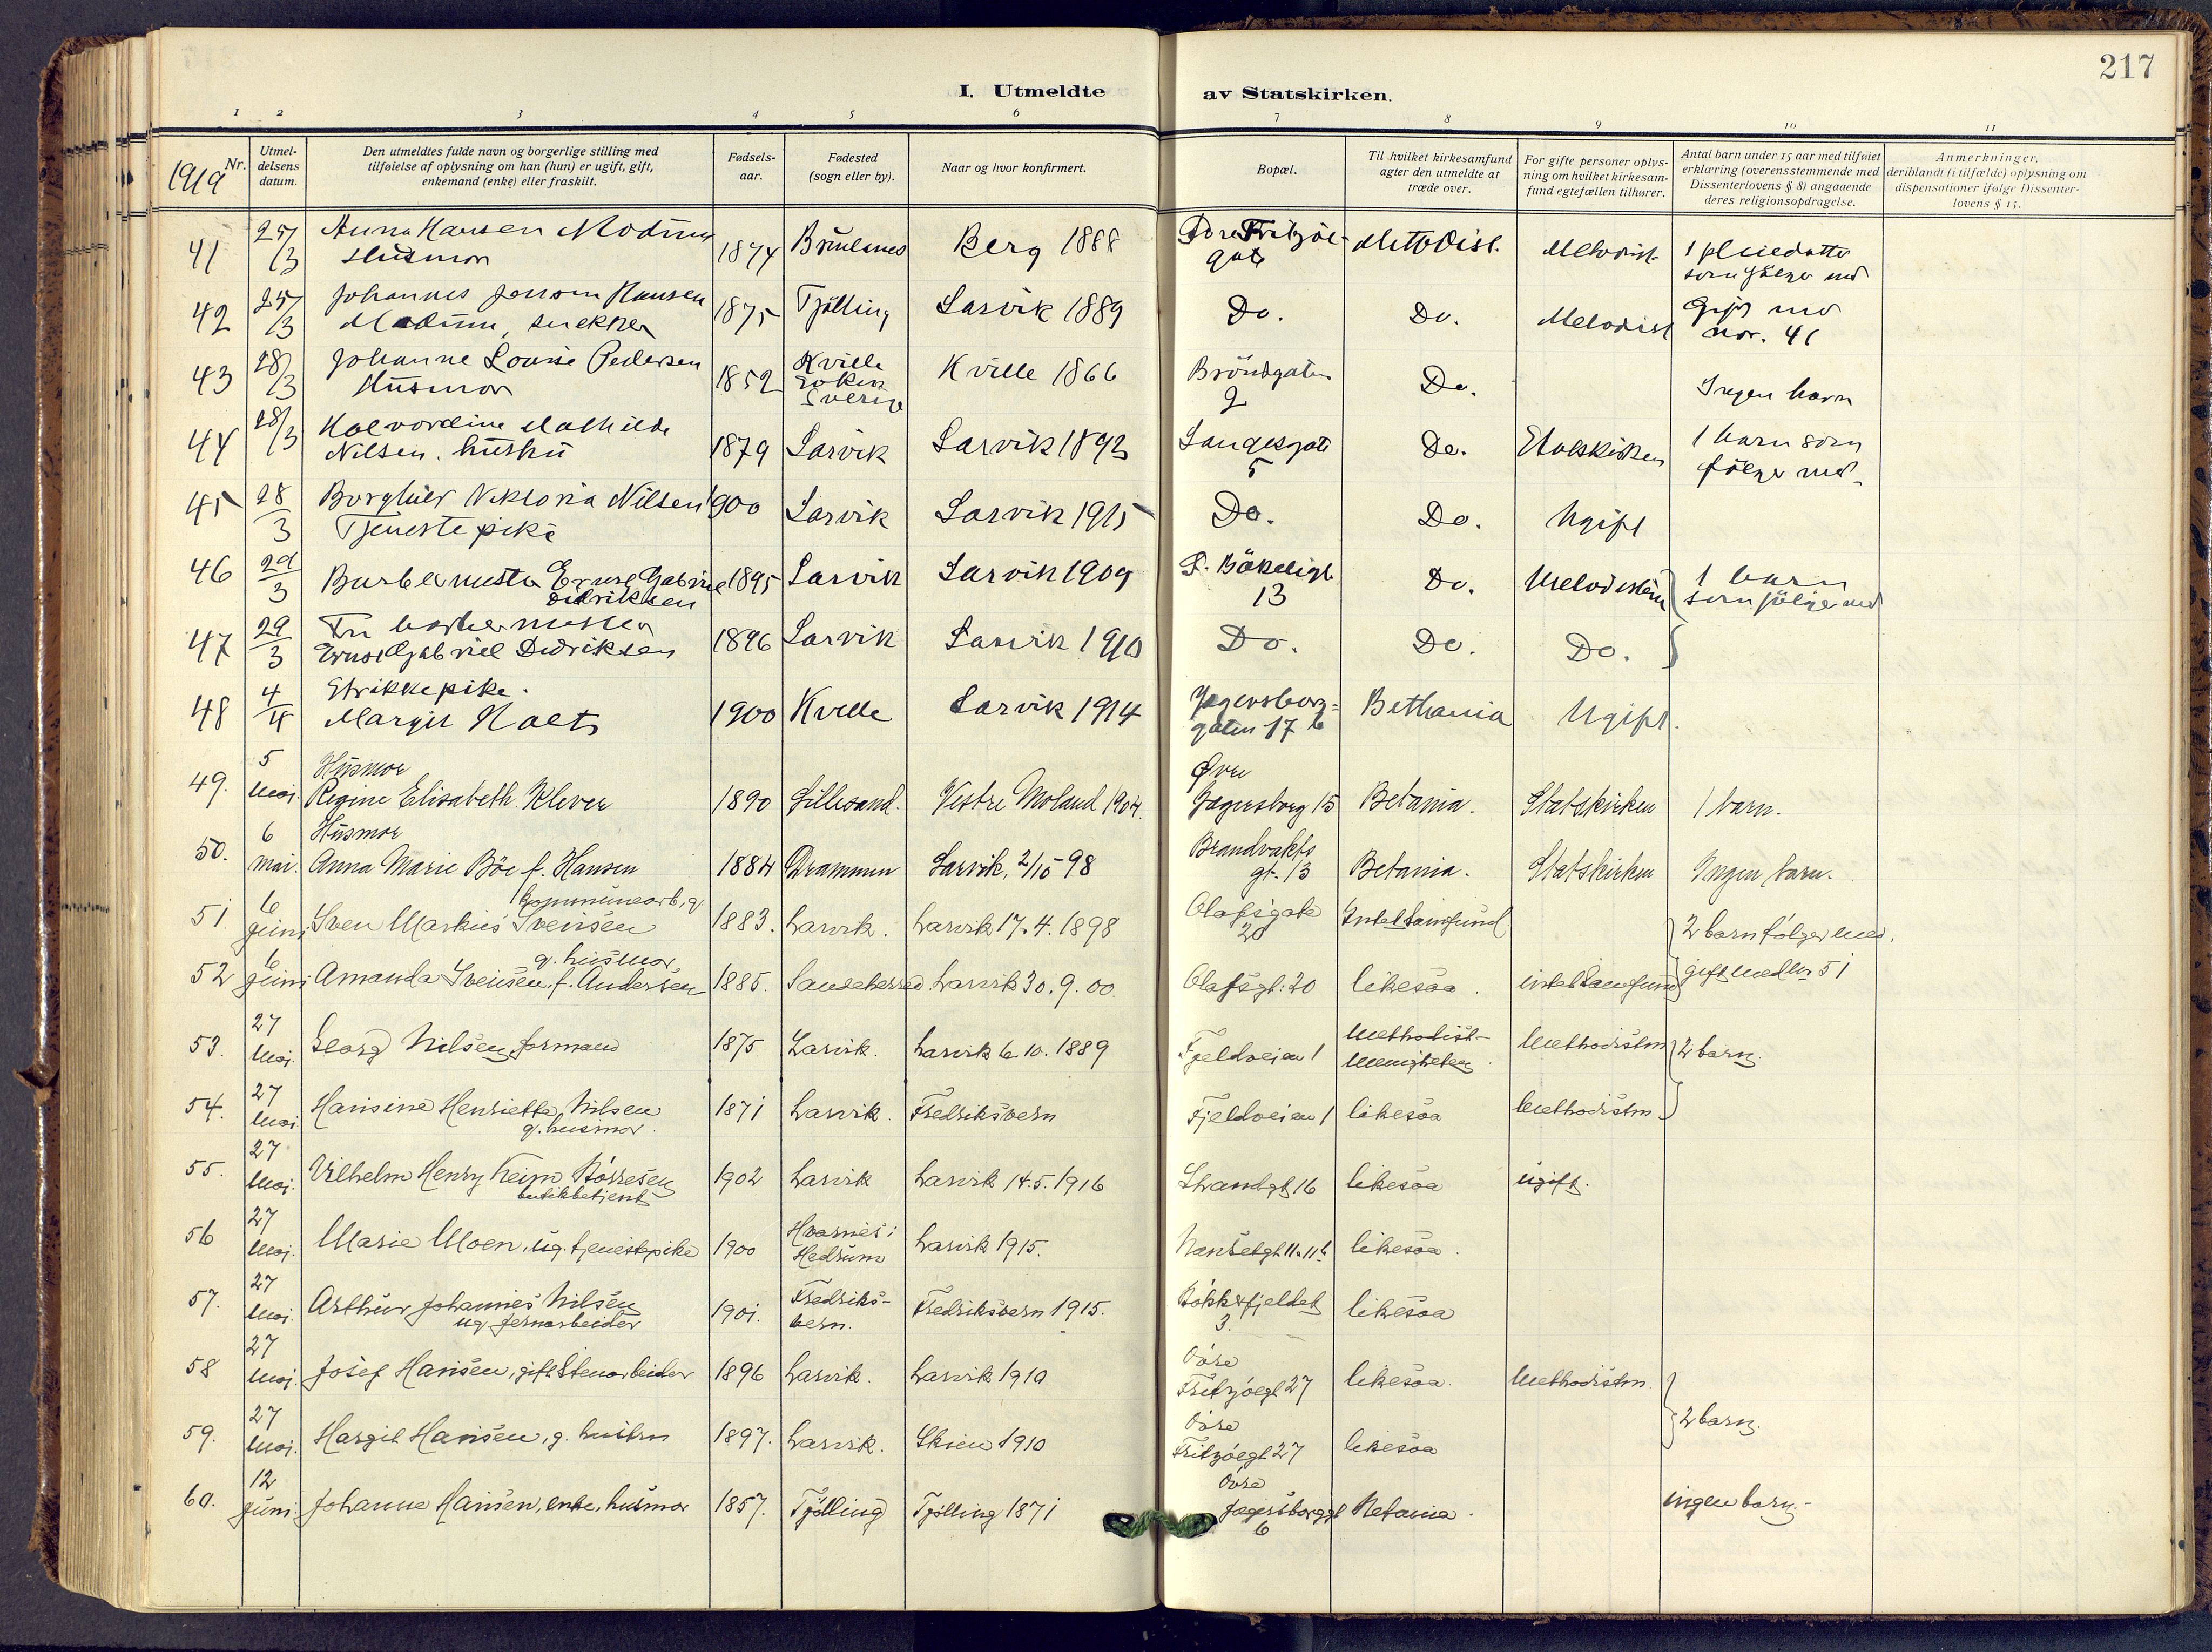 217
I. Utmeldte av Statskirken.
1 2 3 4 5 6 7 8 9 10 11
1919 Nr.
Utmeldelsens datum.
Den utmeldtes fulde navn og borgerlige stilling med tilføielse af oplysning om han (hun) er ugift, gift, enkemand (enke) eller fraskilt.
Fødselsaar.
Fødested (sogn eller by).
Naar og hvor konfirmert.
Bopæl.
Til hvilket kirkesamfund agter den utmeldte at træde over.
For gifte personer oplysning om hvilket kirkesamfund egtefællen tilhører.
Antal barn under 15 aar med tilføiet erklæring (overensstemmende med Dissenterlovens § 8) angaaende deres religionsopdragelse.
Anmerkninger, deriblandt (i tilfælde) oplysning om dispensationer ifølge Dissenterlovens § 15.
41 25/3 Anna Hansen Modum Husmor 1874 Brunlanes Berg 1888 gate Methodist. Methodist 1 pleiedatter som følger med
42 25/3 Johannes Jensen Hansen Modum, snekker 1875 Tjölling Larvik 1889 Do. Do. Metodist Gift med nor. 41
43 28/3 Johanne Louise Pedersen Husmor 1852 Kville Soken Sverige Kville 1866 Bröndgaten 2 Do. Ingen barn
44 28/3 Halvordine Mathilde Nilsen. hustru 1879 Larvik Larvik 1892 Langesgate 5 Do. Statskirken 1 barn som følger med
45 28/3 Borghild Viktoria Nilsen Tjenestepike 1900 Larvik Larvik 1915 Do. Do. Ugift
46 29/3 Barbermester Ernst Gabriel Didriksen 1895 Larvik Larvik 1909 13 Do. Metodisten 1 barn som følger med
47 29/3 Fru barbermester Ernst Gabriel Didriksen 1896 Larvik Larvik 1910 Do. Do. Do.
48 4/4 Strikkepike. Margit Holt 1900 Kvelle Larvik 1914 Jegersborggaten 17 b Bethania Ugift.
49. 5 mai. Husmor Regine Elisabeth Klever 1890 Lillesand. Vestre Moland 1904. Øvre Jegersborg 15 Betania. Statskirken 1 barn.
50. 6 mai. Husmor Anna Marie Böe f. Hansen 1884 Drammen Larvik, 2/10-98 Brandvakts gt. 13 Betania. Statskirken Ingen barn.
51 6 juni Sven Markus Svensen kommunearb, g. 1883. Larvik. Larvik 17.4.1898 Olafsgate 20 Intet samfund 2 barn følger med.
52 6 juni Amanda Svensen, f. Andersen g. husmor 1885. Sandeherred Larvik 30.9.00. Olafsgt. 20 likesaa. intet samfund gift med nr 51
53. 27 mai. Georg Nilsen, formand 1875 Larvik. Larvik 6.10.1889 Fjeldveien 1 Methodistmenigheten. Methodistm 2 barn.
54. 27 mai Hansine Henriette Nilsen g. husmor. 1871 Larvik. Fredriksvern Fjeldveien 1 likesaa Methodistm.
55. 27 mai. Vilhelm Henry Keim Börresen butikbetjent 1902 Larvik Larvik 14.5.1916 Strandgt 16 likesaa ugift.
56 27 mai. Marie Moen, ug. tjenestepike 1900 Hvarnes i Hedrum Larvik 1915. Nansetgt 11a 11b likesaa.
57. 27 mai. Arthur Johannes Nilsen ug. jernarbeider 1901. Fredriksvern. Fredriksvern 1915. Bökkerfjeldet 3. likesaa
58 27 mai. Josef Hansen, gift Stenarbeider 1896 Larvik. Larvik 1910 Övre Fritzöegt 27 likesaa. Methodistm.
59. 27 mai. Margit Hansen, g. hustru 1897. Larvik. Skien 1910 Övre Fritzöegt 27 likesaa 2 barn.
60. 12 juni. Johanne Hansen, enke, husmor 1857. Tjölling Tjölling 1871 Övre Jegersborggt 6 Betania. ingen barn.-